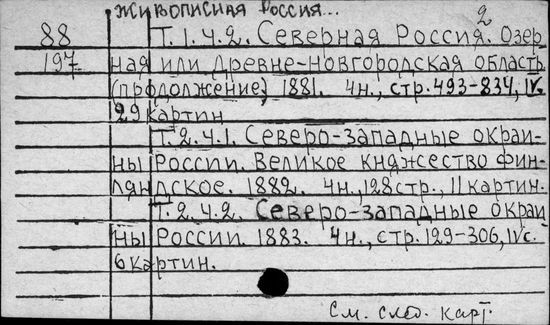 Живописная Россия...
2
88 Т.1.ч.2. Северная Россия. Озер-
197 ная или Древне-новгородская область
(продолжение) 1881. 4н., стр. 493-834, IVс.
29 картин
Т.2.ч.1. Северо-западные окраи-
ны России. Великое княжество Фин-
ляндское. 1882. 4н., 128 стр., 11 картин.
Т.2.ч.2. Северо-западные окраи
ны России. 1883. 4н., стр. 129-306, IVс.
6 картин.
См. след. карт.